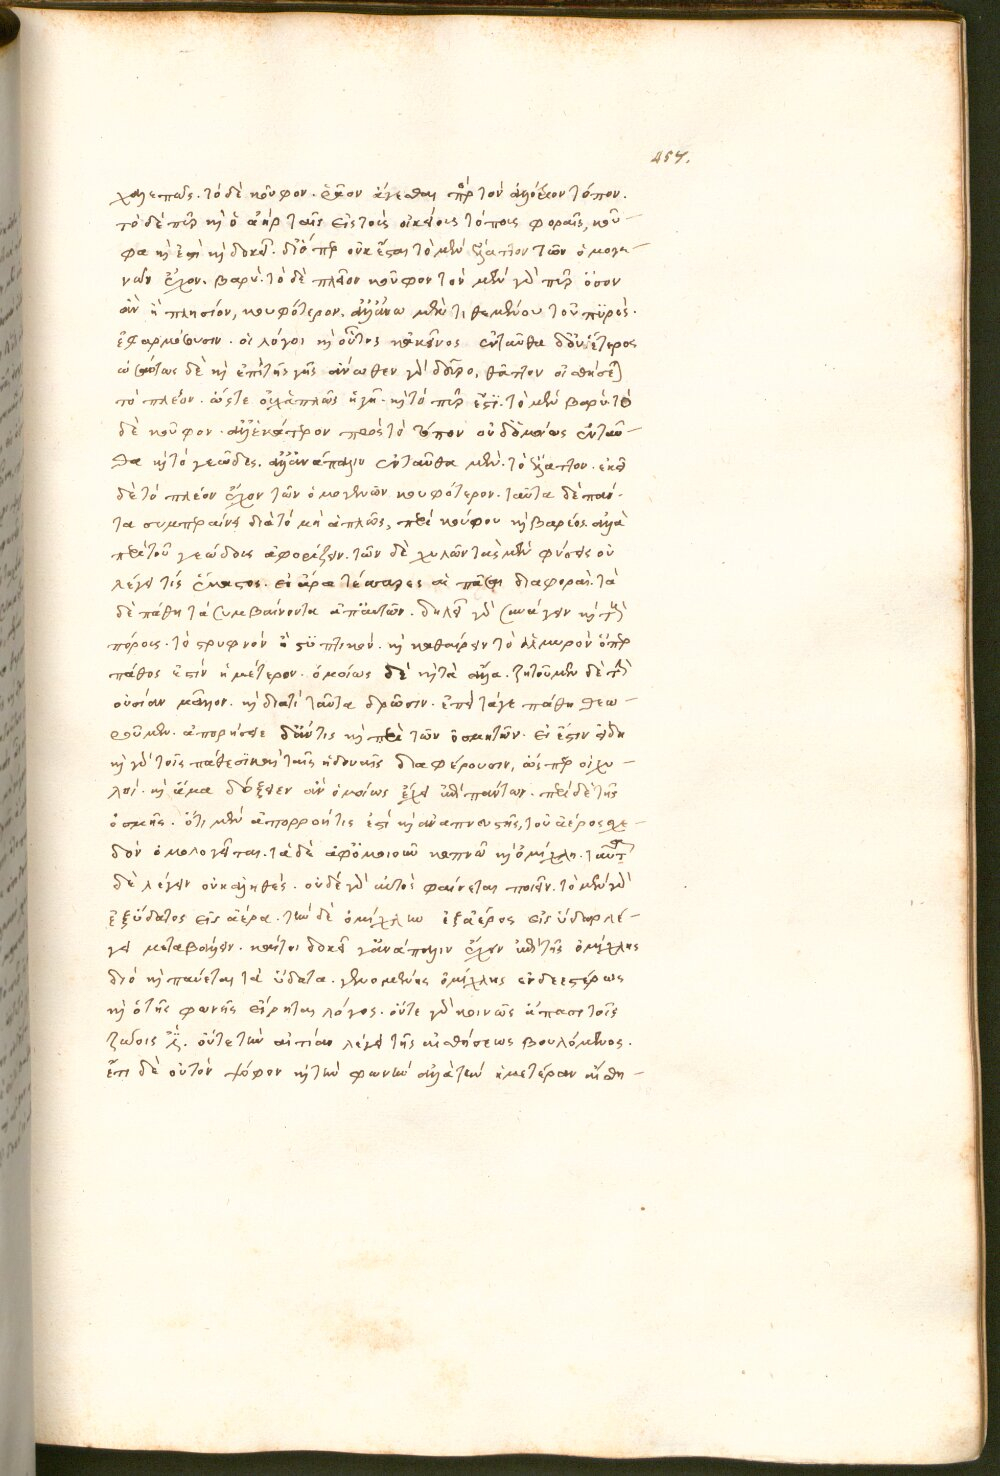 457.
χαλεπῶς. τὸ δὲ κοῦφον. ῥᾷον ἄγεσθαι πρ τὸν ἀνόμοιον τόπον.
τὸ δὲ πῦρ καὶ ὁ ἀὴρ ταῖς εἰς τοὺς οἰκείους τόπους φοραῖς, κοῦ–
φα καὶ ἐστὶ καὶ δοκεῖ. διόπερ οὐκ ἔσται τὸ μὲν ἔλαττον τῶν ὁμογε–
νῶν ἔχον. βαρύ. τὸ δὲ πλεῖον κοῦφον τὸν μὲν γὰρ πῦρ ὅσον
ἂν ᾖ πλησίον, κουφότερον. ἀλλ' ἄνω μὲν τιθεμένου τοῦ πυρὸς.
ἐφαρμόττουσιν. οἱ λόγοι καὶ οὗτος κἀκεῖνος ἐνταῦθα δ' οὐδ' ἕτερος
ὡσαύτως δὲ καὶ ἐπὶ τῆς γῆς ἄνωθεν γὰρ δεῦρο, θᾶττον οἰσθήσεται
τὸ πλέον. ὥστε οὐχ ἁπλῶς ἡ γῆ. καὶ τὸ πῦρ ἐστι. τὸ μὲν βαρύ. τὸ
δὲ κοῦφον. ἀλλ' ἑκάτερον πρὸς τὸ τόπον οὐδ' ὁμοίως ἐνταῦ–
θα καὶ τὸ γεῶδες. ἀλλ' ἀνάπαλιν ἐνταῦθα μὲν. τὸ ἔλαττον. ἐκεῖ
δὲ τὸ πλέον ἔχον τῶν ὁμογενῶν κουφότερον. ταῦτα δὲ πάν-
τα συμβαίνει διὰ τὸ μὴ ἁπλῶς, περὶ κούφου καὶ βαρέος. ἀλλὰ
περὶ τοῦ γεώδους ἀφορίζειν. τῶν δὲ χυλῶν τὰς μὲν φύσεις οὐ
λέγει τίς ἕκαστος. εἰ ἄρα τέσσαρες αἱ πᾶσαι διαφοραὶ. τὰ
δὲ πάθη τὰ συμβαίνοντα ἀπ' αὐτῶν. δηλοῖ γὰρ συνάγειν καὶ τοὺς
πόρους. τὸ στρυφνὸν ἢ στυπτικόν. καὶ καθαίρειν τὸ ἁλμυρὸν ὅπερ
πάθος ἐστὶν ἡμέτερον. ὁμοίως δὲ καὶ τὰ ἄλλα. ζητοῦμεν δὲ τὴν
οὐσίαν μᾶλλον. καὶ διατί ταῦτα δρῶσιν. ἐπεὶ τά γε πάθη θεω–
ροῦμεν. ἀπορήσειε δ' ἄν τις καὶ περὶ τῶν ὀσμητῶν. εἰ ἔστιν εἴδη
καὶ γὰρ τοῖς πάθεσι καὶ ταῖς ἡδοναῖς διαφέρουσιν, ὥσπερ οἱ χυ–
λοί. καὶ ἅμα δόξειεν ἂν ὁμοίως ἔχειν ἐπὶ πάντων. περὶ δὲ τῆς
ὀσμῆς. ὅτι μὲν ἀπορροή τις ἐστὶ καὶ ἀναπνευστῆς, τοῦ ἀέρος σχε–
δὸν ὁμολογεῖται. τὸ δὲ ἀφομοιοῦν καπνῷ καὶ ὀμίχλη. ταὐτὸ
δὲ λέγειν οὐκ ἀληθές. οὐδὲ γὰρ αὐτὸς φαίνεται ποιεῖν. τὸ μὲν γὰρ
ἐξ ὕδατος εἰς ἀέρα. τὴν δὲ ὀμίχλην ἐξ ἀέρος εἰς ὕδωρ λέ–
γει μεταβάλλειν. καίτοι δοκεῖ γ' ἀνάπαλιν ἔχειν ἐπὶ τῆς ὀμίχλης
διὸ καὶ παύεται τὰ ὕδατα. γενομένης ὀμίχλης ἐνδεεστέρως
καὶ ὁ τῆς φωνῆς εἴρηται λόγος. οὔτε γὰρ κοινῶς ἅπασι τοῖς
ζῴοις ἐστι. οὔτε τὴν αἰτίαν λέγει τῆς αἰσθήσεως βουλόμενος.
ἔτι δὲ οὐ τὸν ψόφον καὶ τὴν φωνὴν ἀλλὰ τὴν ἡμετέραν αἴσθη–